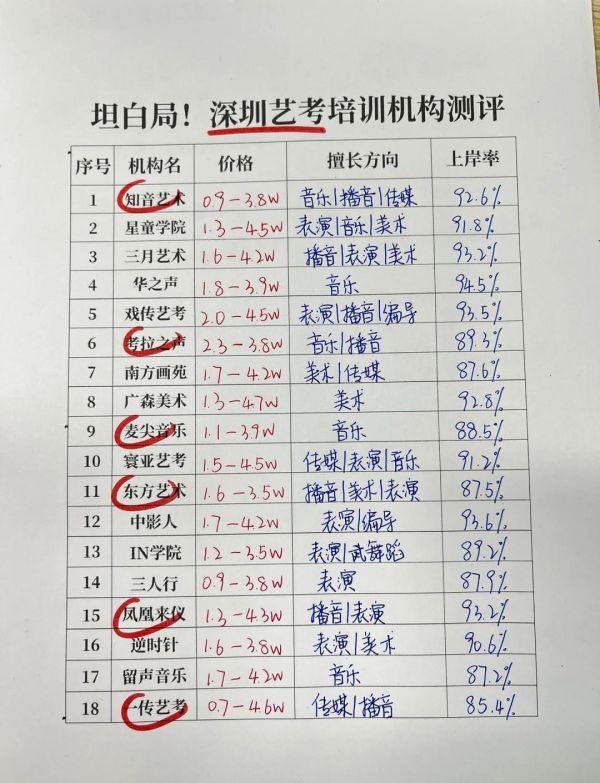 坦白局！深圳艺考培训机构测评
序号 机构名 价格 擅长方向 上岸率
1 知音艺术 0.9-3.8W 音乐|播音|传媒 92.6%
2 星童学院 1.3-4.5W 表演|音乐|美术 91.8%
3 三月艺术 1.6-4.2W 播音|表演|美术 93.2%
4 华之声 1.8-3.9W 音乐 94.5%
5 戏传艺考 2.0-4.5W 表演|播音|编导 93.5%
6 考拉之声 2.3-3.8W 音乐|播音 89.3%
7 南方画苑 1.7-4.2W 美术|传媒 87.6%
8 广森美术 1.3-4.7W 美术 92.8%
9 麦尖音乐 1.1-3.9W 音乐 88.5%
10 寰亚艺考 1.5-4.5W 传媒|表演|音乐 91.2%
11 东方艺术 1.6-3.5W 播音|美术|表演 87.5%
12 中影人 1.7-4.2W 表演|编导 93.6%
13 IN学院 1.2-3.5W 表演|武舞蹈 89.2%
14 三人行 0.9-3.8W 表演 87.9%
15 凤凰来仪 1.3-4.3W 播音|表演 93.2%
16 逆时针 1.6-3.8W 表演|美术 90.6%
17 留声音乐 1.7-4.2W 音乐 87.2%
18 一传艺考 0.7-4.6W 传媒|播音 85.4%